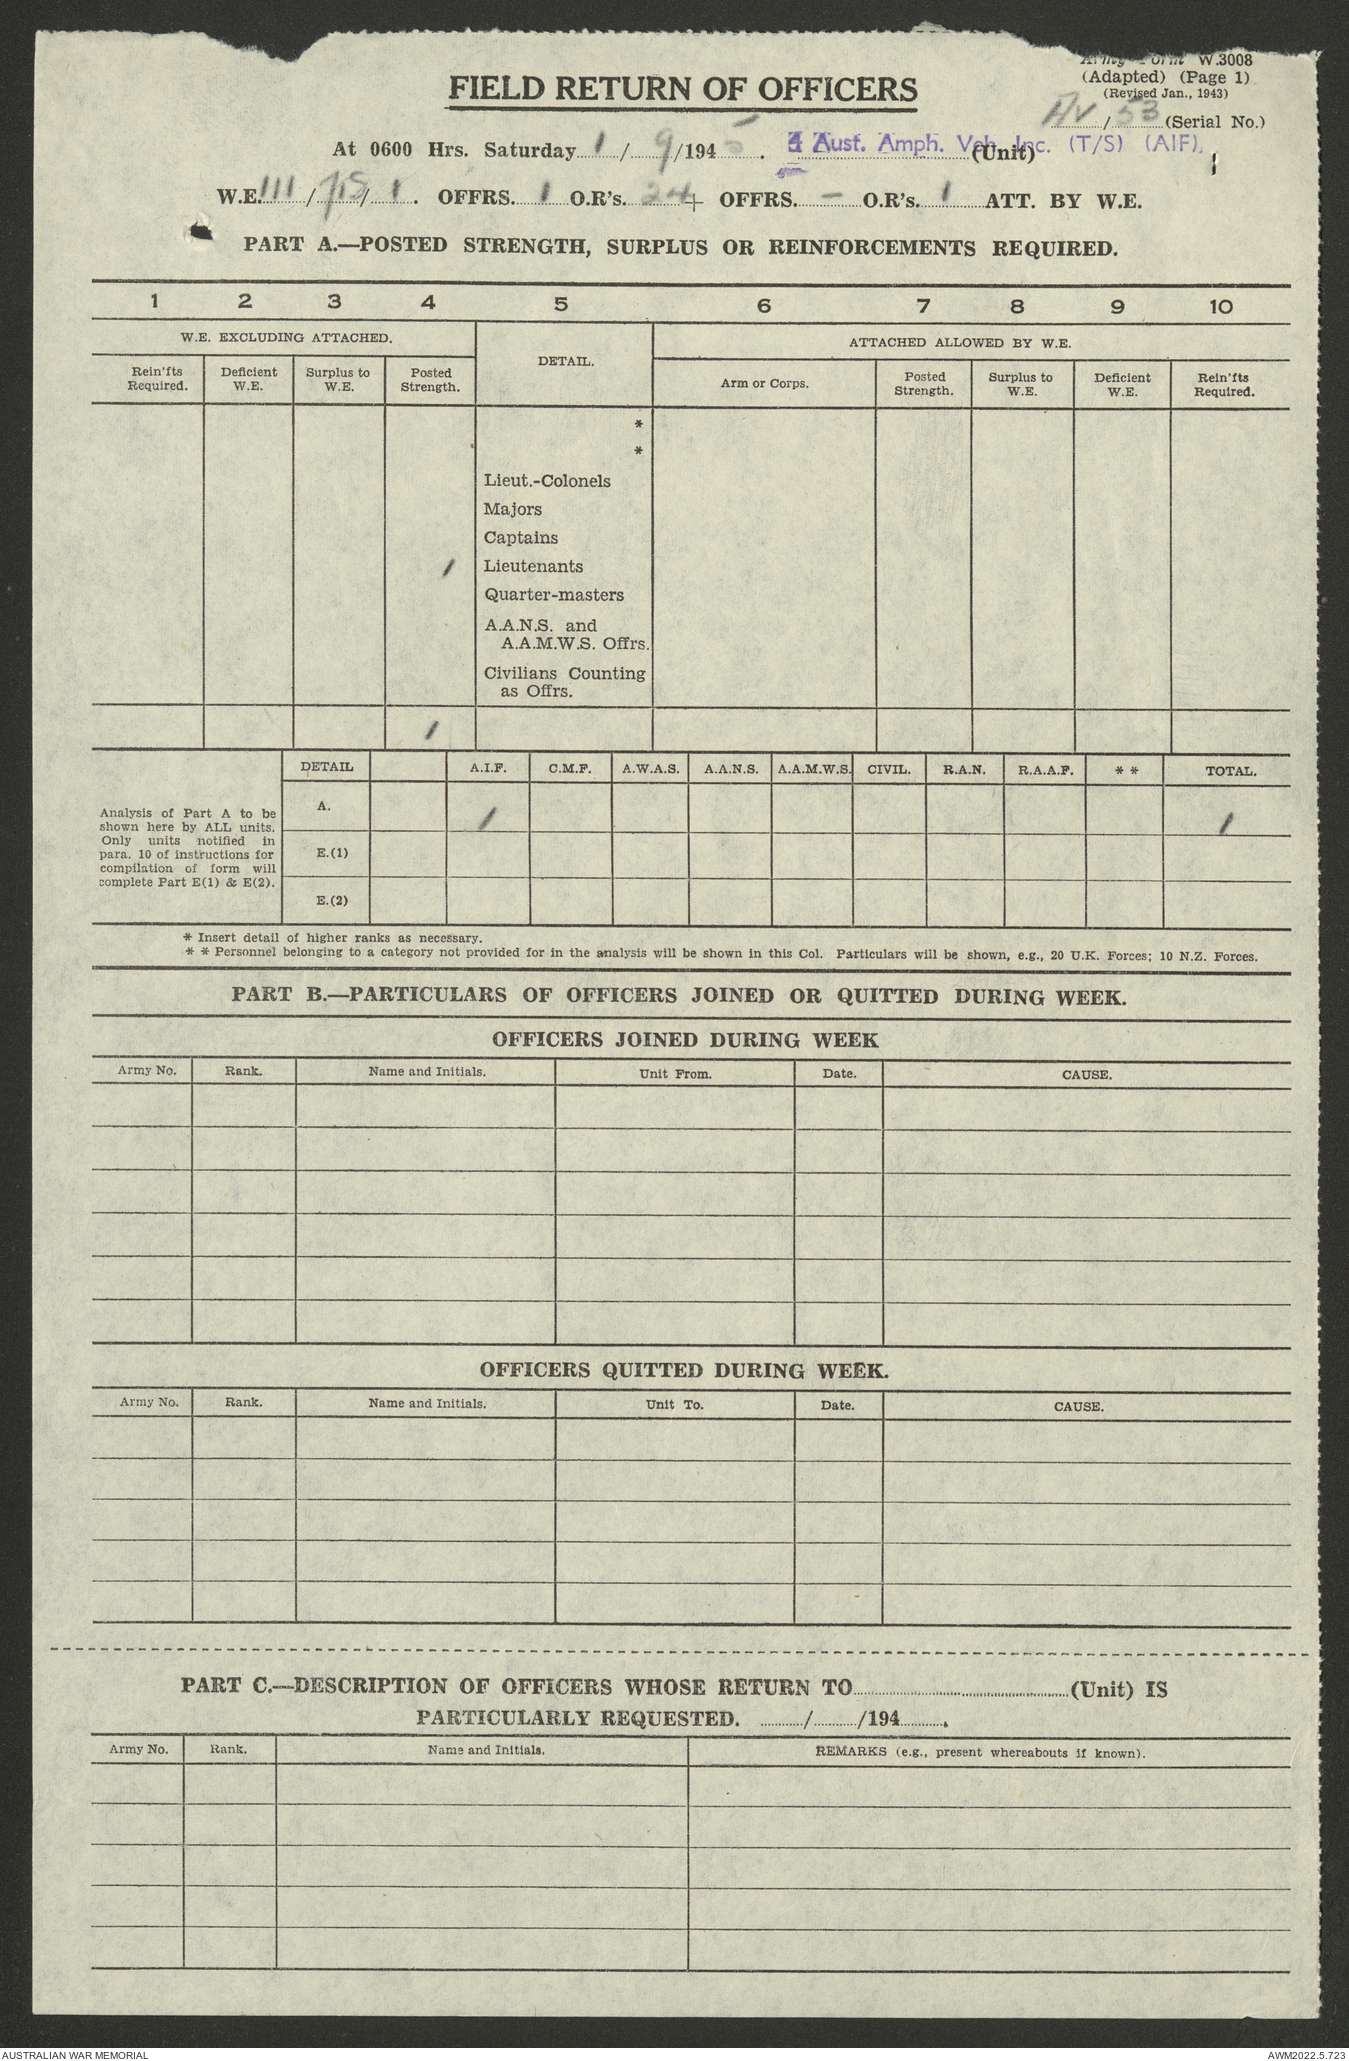 Army Form W.3008
(Adapted) (Page 1)
(Revised Jan., 1943)
FIELD RETURN OF OFFICERS
AV / 53 (Serial No.)
At 0600 Hrs. Saturday 1 / 9 /194 5 . 4 Aust. Amph. Veh. Inc. (T/S) (AIF). (Unit)
W.E. 111 / / 1 . OFFRS. 1 O.R's. 24 + OFFRS. – O.R's. 1 ATT. BY W.E.
PART A.—POSTED STRENGTH, SURPLUS OR REINFORCEMENTS REQUIRED.
1 2 3 4 5 6 7 8 9 10
W.E. EXCLUDING ATTACHED. DETAIL. ATTACHED ALLOWED BY W.E.
Rein'fts Required. Deficient W.E. Surplus to W.E. Posted Strength. Arm or Corps. Posted Strength. Surplus to W.E. Deficient W.E. Rein'fts Required.
*
*
Lieut.-Colonels
Majors
Captains
1 Lieutenants
Quarter-masters
A.A.N.S. and
A.A.M.W.S. Offrs.
Civilians Counting
as Offrs.
1
DETAIL A.I.F. C.M.F. A.W.A.S. A.A.N.S. A.A.M.W.S. CIVIL. R.A.N. R.A.A.F. * * TOTAL.
Analysis of Part A to be
shown here by ALL units.
Only units notified in
para. 10 of instructions for
compilation of form will
complete Part E(1) & E(2).
A. 1 1
E.(1)
E.(2)
* Insert detail of higher ranks as necessary.
* * Personnel belonging to a category not provided for in the analysis will be shown in this Col. Particulars will be shown, e.g., 20 U.K. Forces; 10 N.Z. Forces.
PART B.—PARTICULARS OF OFFICERS JOINED OR QUITTED DURING WEEK.
OFFICERS JOINED DURING WEEK
Army No. Rank. Name and Initials. Unit From. Date. CAUSE.
OFFICERS QUITTED DURING WEEK.
Army No. Rank. Name and Initials. Unit To. Date. CAUSE.
PART C.—DESCRIPTION OF OFFICERS WHOSE RETURN TO (Unit) IS
PARTICULARLY REQUESTED. / /194 .
Army No. Rank. Name and Initials. REMARKS (e.g., present whereabouts if known).
AUSTRALIAN WAR MEMORIAL AWM2022.5.723